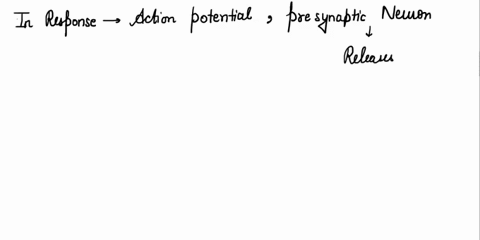 In Response → Action potential, presynaptic Neuron
↓
Releases